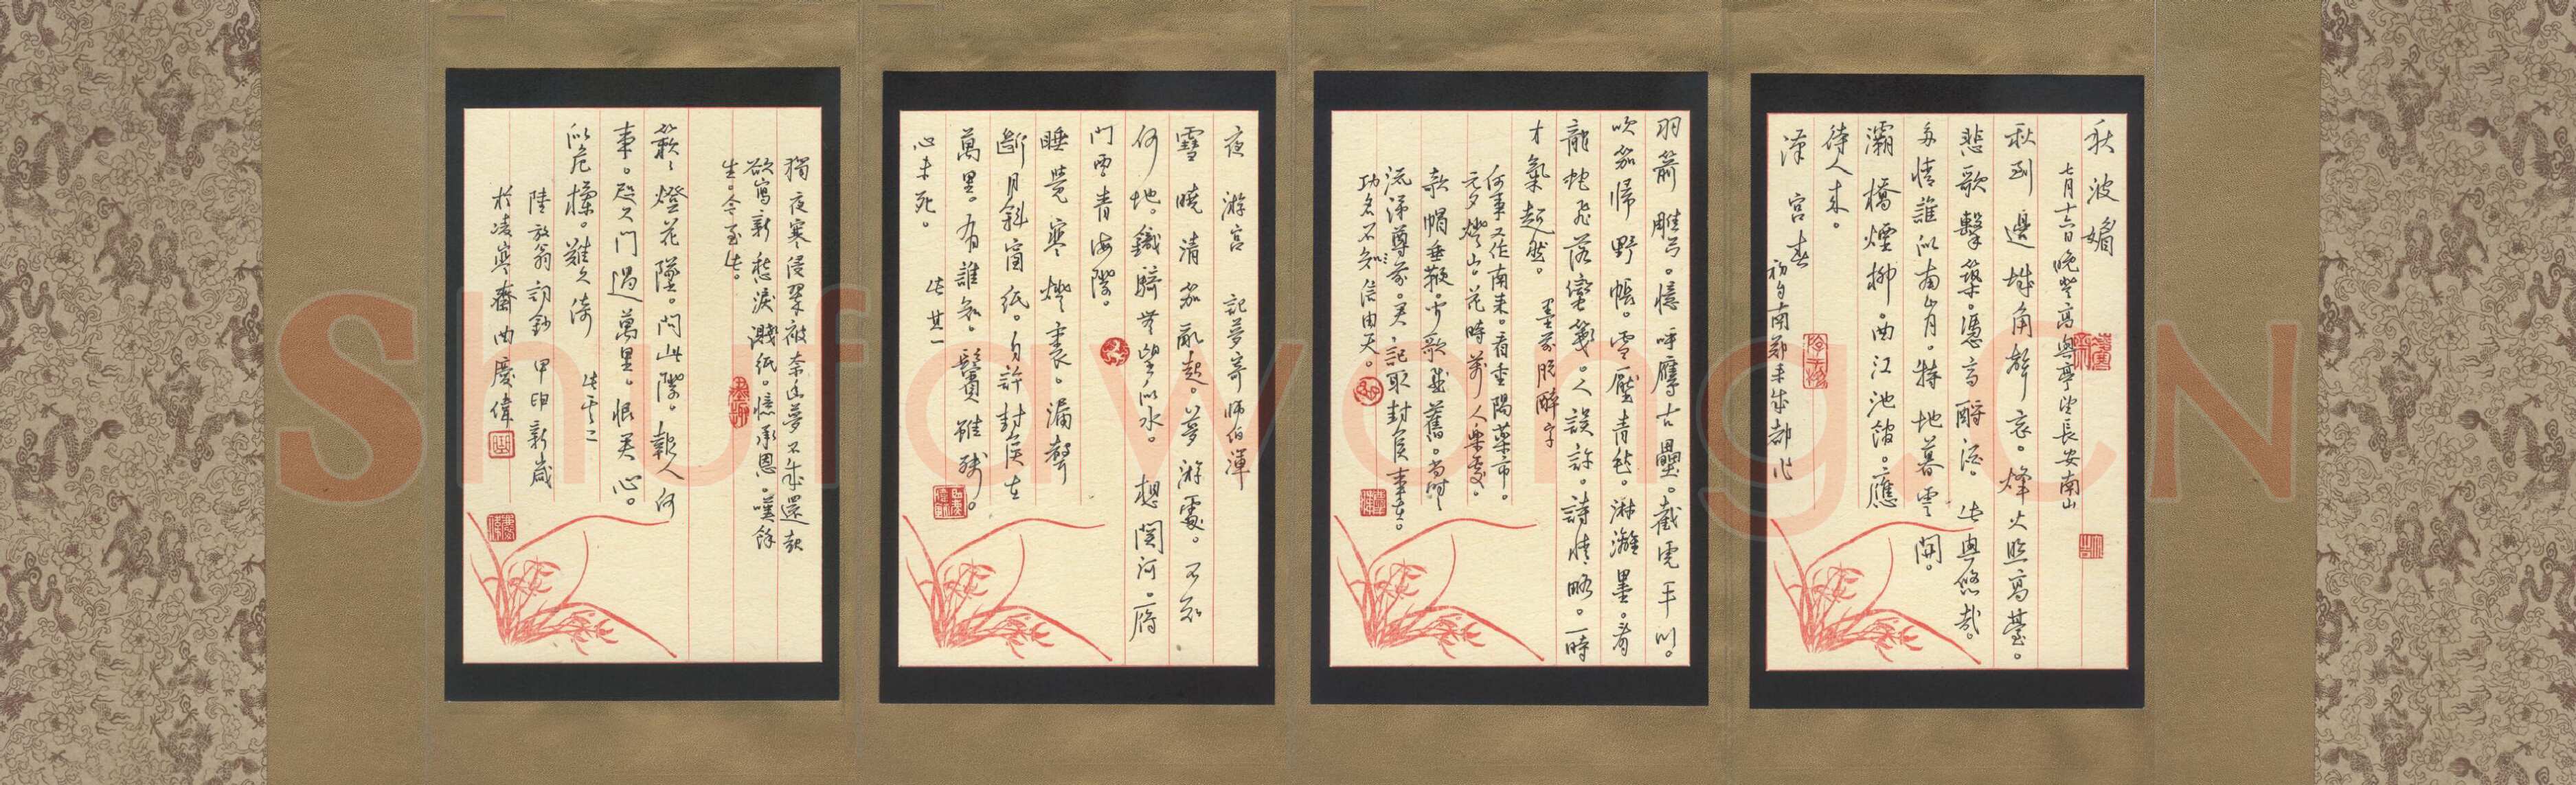 秋波媚
七月十六日晚登高興亭望長安南山
秋到邊城角聲哀。烽火照高臺。
悲歌擊築。憑高酹酒。此興悠哉。
多情誰似南山月。特地暮雲開。
灞橋煙柳。曲江池館。應
待人來。
漢宮春
初自南鄭來成都作
羽箭雕弓。憶呼鷹古壘。截虎平川。
吹笳歸野帳。雪壓青氈。淋漓墨。看
龍蛇飛落蠻箋。人誤許。詩情略。一時
才氣超然。
墨前脫醉字
何事又作南來。看重陽藥市。
元夕燈山。花時萬人樂處。
欹帽垂鞭。聞歌感舊。尚時
流涕尊前。君記取封侯事在。
功名不知信由天。
夜游宮 記夢寄師伯渾
雪曉清笳亂起。夢游處。不知
何地。鐵騎無聲望似水。想關河。雁
門西青海際。
睡覺寒燈裏。漏聲
斷月斜窗紙。自許封侯在
萬里。有誰知。鬢雖殘。
心未死。
此其一
獨夜寒侵翠被奈幽夢不成還起
欲寫新愁淚濺紙。憶承恩。嘆餘
生。今至此。
簌簌燈花墜。問此際。報人何
事。咫尺門過萬里。恨君心。
似危欄。難久倚
此其二
陸放翁詞鈔 甲申新歲
於凌寒齋曲慶偉
Shufawang.CN